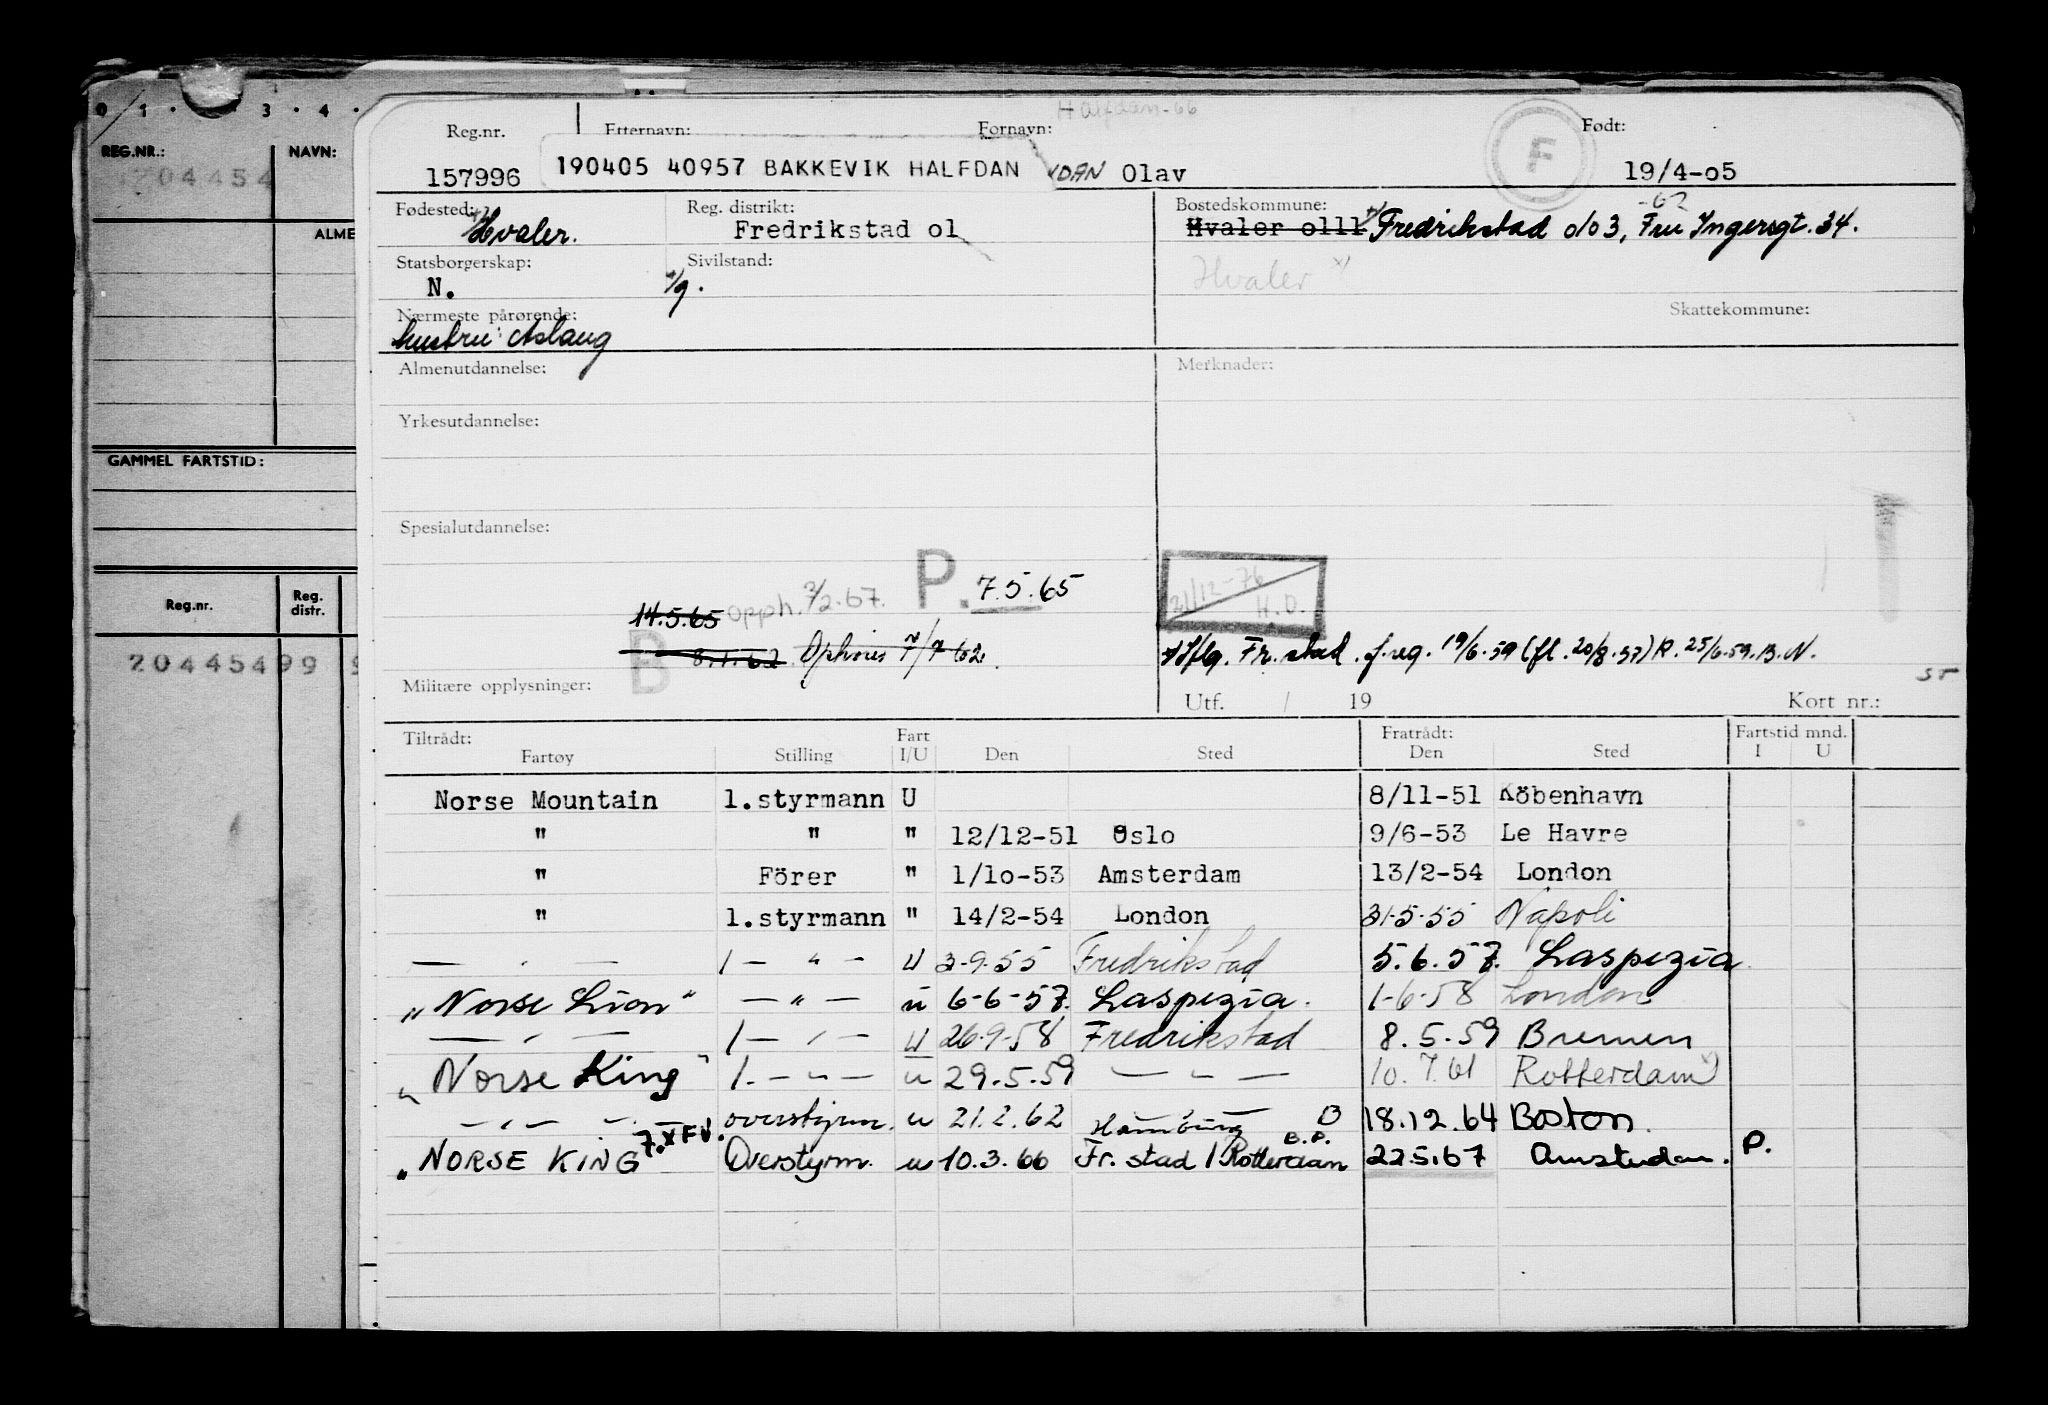 0 1 · 3 · 4 ·
REG.NR.: NAVN:
204454
ALME
GAMMEL FARTSTID:
Reg.nr. Reg. distr.
20445499
Halfdan-66
Reg.nr. Etternavn: Fornavn: Født:
F
157996 190405 40957 BAKKEVIK HALFDAN DAN Olav 19/4-o5
Fødested: Reg. distrikt: Bostedskommune: -62
Hvaler. Fredrikstad ol Hvaler olll Fredrikstad o/o 3, Fru Ingersgt. 34.
Statsborgerskap: Sivilstand: Hvaler x)
N. g.
Nærmeste pårørende: Skattekommune:
hustru: Aslaug
Almenutdannelse: Merknader:
Yrkesutdannelse:
Spesialutdannelse:
14.5.65 opph. 7/2.67. P. 7.5.65 21/12-76 H.O.
B 8.1.62 Ophører 7/7 62 x) Iflg. Fr.stad f.reg. 19/6.59 (fl. 20/8.57) R. 25/6.59. B.N.
Militære opplysninger: Utf. / 19 Kort nr.:
Tiltrådt: Fart Fratrådt: Fartstid mnd.
Fartøy Stilling I/U Den Sted Den Sted I U
Norse Mountain 1.styrmann U 8/11-51 Köbenhavn
" " " 12/12-51 Oslo 9/6-53 Le Havre
" Förer " 1/1o-53 Amsterdam 13/2-54 London
" 1.styrmann " 14/2-54 London 31-5-55 Napoli
— " — 1 — " — U 3-9-55 Fredrikstad 5.6.57. Laspezia
"Norse Lion" — " — u 6-6-57. Laspezia. 1-6-58 London
— " — 1 — " — U 26-9-58 Fredrikstad 8.5.59 Bremen
"Norse King" 1. — " — u 29.5.59 — " — 10.7.61 Rotterdam
— " — overstyrm. u 21.2.62 Hamburg B 18.12.64 Boston.
"NORSE KING Overstyrm. u 10.3.66 Fr.stad / Rotterdam B.P. 22.5.67 Amsterdam. P.